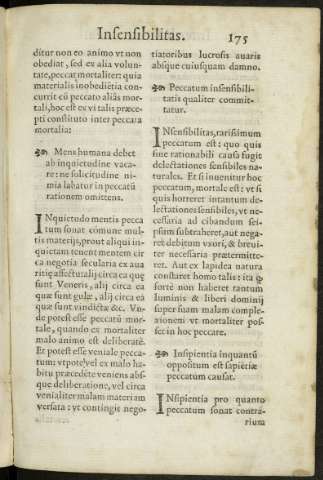 Insensibilitas. 175
ditur non eo animo vt non
obediat, sed ex alia volun-
tate, peccat mortaliter: quia
materialis inobediētia con-
currit cū peccato aliàs mor-
tali, hoc est ex vi talis præce-
pti constituto inter peccata
mortalia:
Mens humana debet
ab inquietudine vaca-
re: ne solicitudine ni-
mia labatur in peccatū
rationem omittens.
INquietudo mentis pecca
tum sonat comune mul-
tis materijs, prout aliqui in-
quietam tenent mentem cir
ca negotia secularia ex aua
ritię affectu: alij circa ea quę
sunt Veneris, alij circa ea
quæ sunt gulæ, alij circa ea
quæ sunt vindictæ &c. Vn-
de potest esse peccatū mor-
tale, quando ex mortaliter
malo animo est deliberatè.
Et potest esse veniale pecca-
tum: vtpote vel ex malo ha-
bitu præcedēte veniens abs-
que deliberatione, vel circa
venialiter malam materiam
versata: vt contingit nego-
tiatoribus lucrosis auaris
absque cuiusquam damno.
Peccatum insensibili-
tatis qualiter commit-
tatur.
INsensibilitas, rarissimum
peccatum est: quo quis
sine rationabili causa fugit
delectationes sensibiles na-
turales. Et si inuenitur hoc
peccatum, mortale est: vt si
quis horreret intantum de-
lectationes sensibiles, vt ne-
cessaria ad cibandum sei-
psum subtraheret, aut nega-
ret debitum vxori, & breui-
ter necessaria prætermitte-
ret. Aut ex lapidea natura
constaret homo talis: ita ꝙ
fortè non haberet tantum
luminis & liberi dominij
super suam malam comple-
xionem vt mortaliter pos-
set in hoc peccare.
Insipientia inquantū
oppositum est sapiētiæ
peccatum causat.
INsipientia pro quanto
peccatum sonat contra-
rium